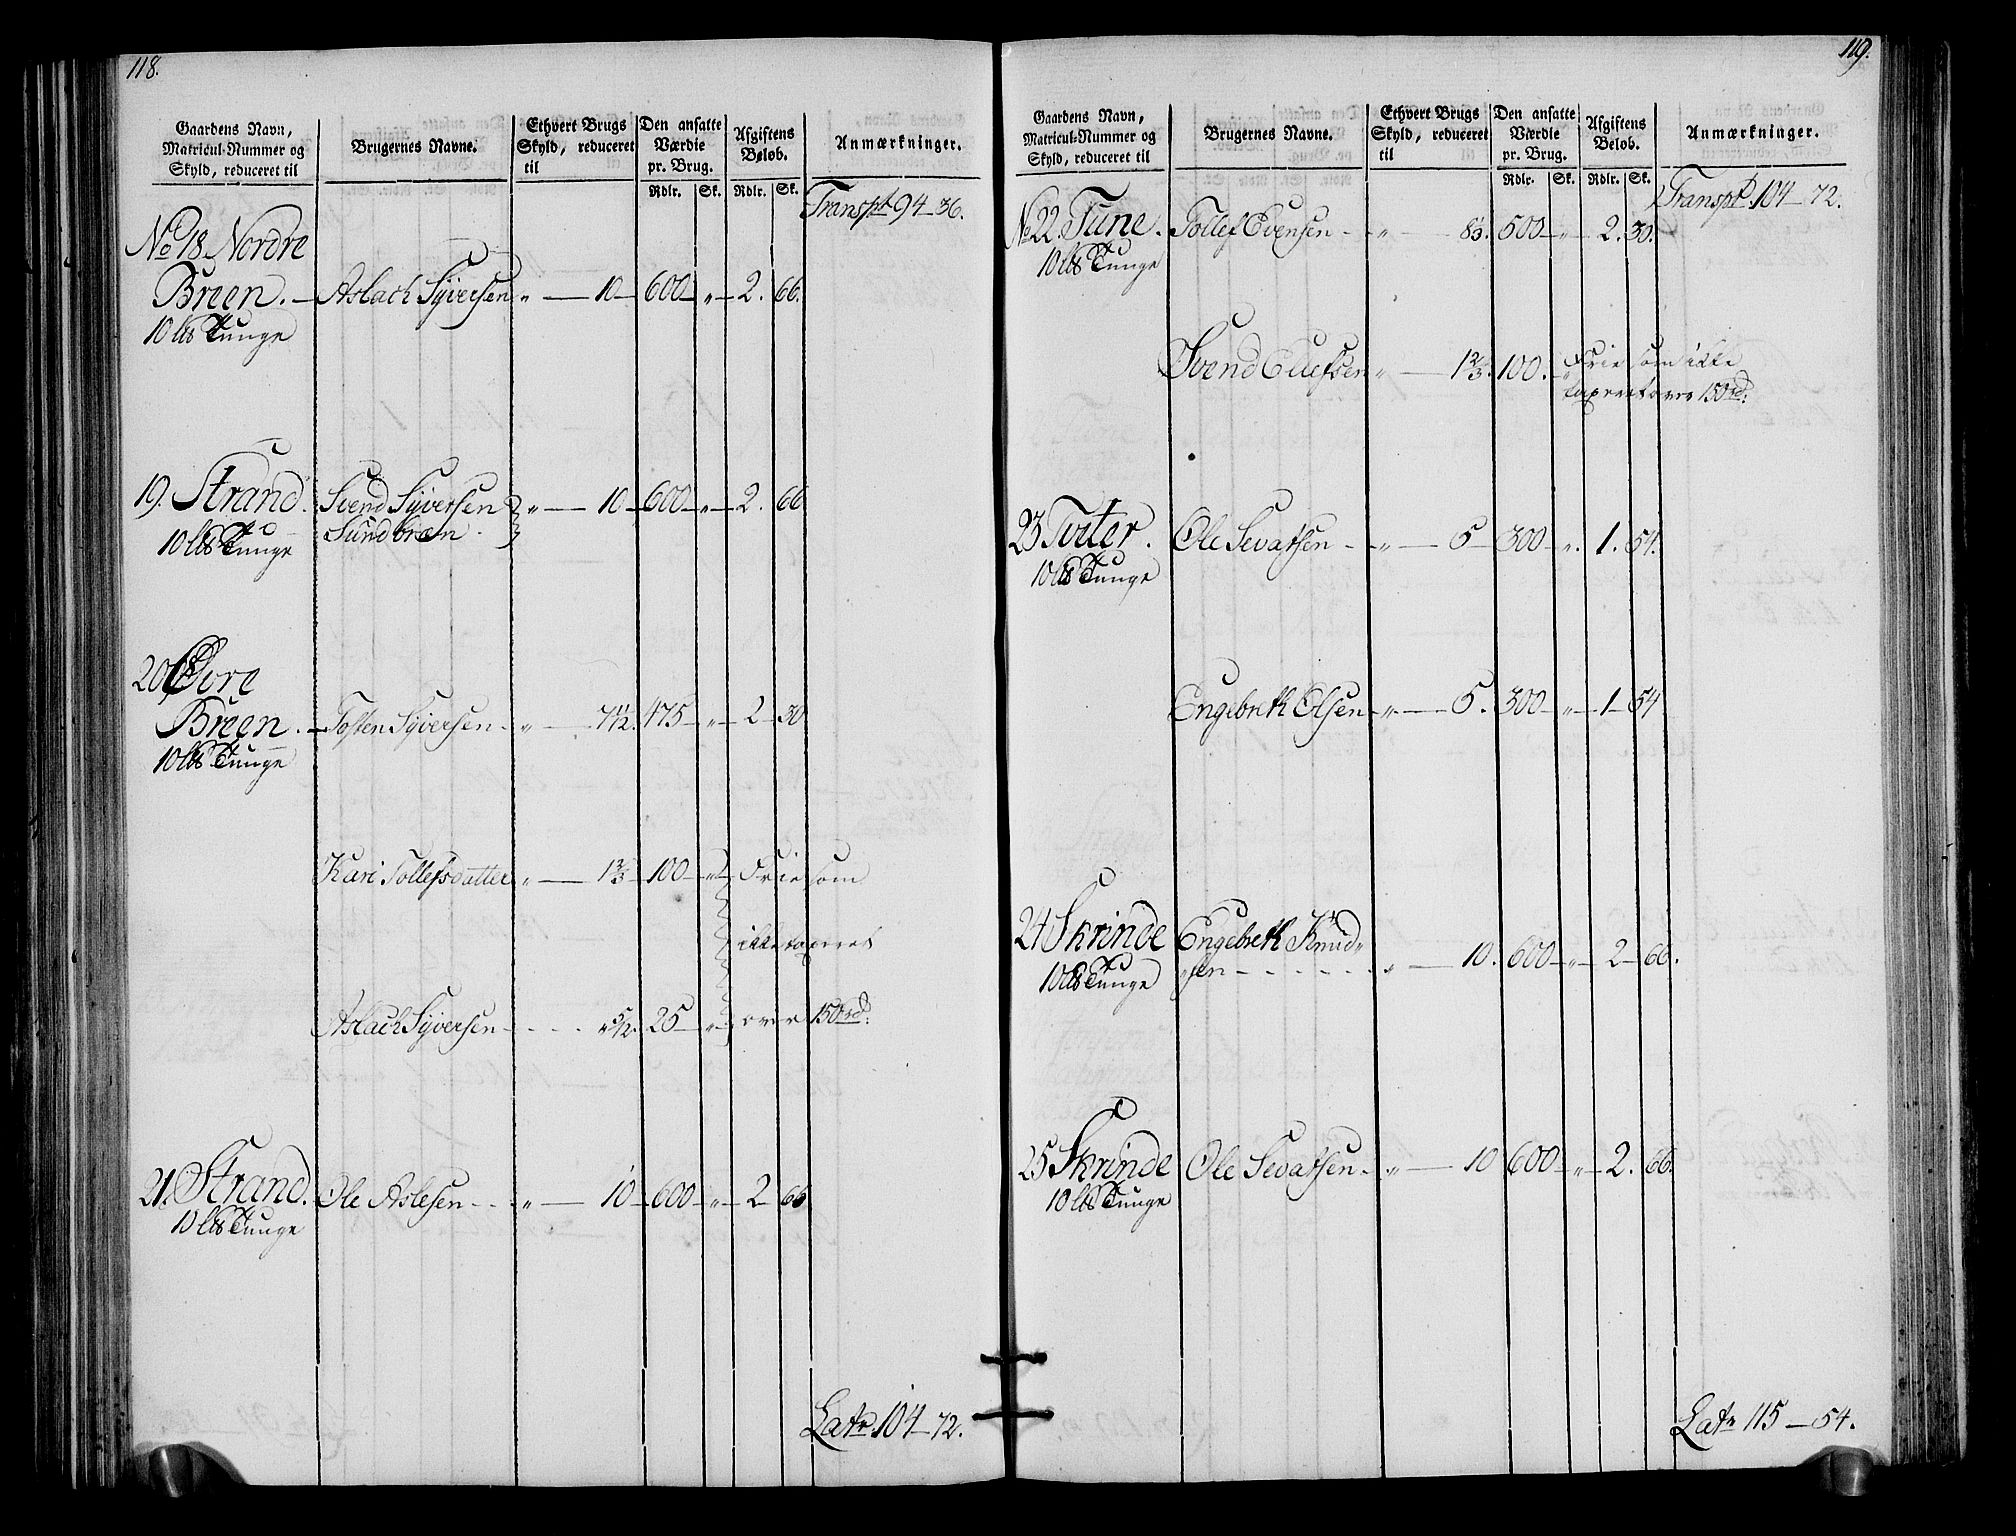 118.
Gaardens Navn,
Matricul-Nummer og
Skyld, reduceret til
Brugernes Navne.
Ethvert Brugs
Skyld, reduceret
til
Den ansatte
Værdie
pr. Brug.
Rdlr. Sk.
Afgiftens
Beløb.
Rdlr. Sk.
Anmærkninger.
Transpt 94 – 36.
No 18 Nordre
Breen. – Aslach Syversen „ – 10 – 600 – „ – 2. 66.
10 lb Tunge
19. Strand. Svend Syversen „ – 10 – 600 – „ – 2. 66
10 lb Tunge Sundbræn.
20 Øvre
Breen. – Tosten Syversen – „ – 7 1/2. 475 – „ – 2 – 30
10 lb Tunge
Kari Tollefsdatter „ – 1 2/3 – 100 – „ – Frie som
ikke taxeret
Aslach Syversen – – – – „ 5/12. 25 – „ – over 150 rd:
21. Strand. Ole Aslesen – – „ – 10 – 600 – „ – 2 – 66
10 lb Tunge
Latr. 104 – 72.
119.
Gaardens Navn,
Matricul-Nummer og
Skyld, reduceret til
Brugernes Navne.
Ethvert Brugs
Skyld, reduceret
til
Den ansatte
Værdie
pr. Brug.
Rdlr. Sk.
Afgiftens
Beløb.
Rdlr. Sk.
Anmærkninger.
Transpt. 104 – 72.
No 22. Tune. Tollef Evensen – „ – 8 1/3. 500 – „ – 2. 30.
10 lb Tunge
Svend Oluefsen „ – 1 2/3. 100. – Frie som ikke
taxeret over 150 rd:
23 Tviter. Ole Sevatsen – „ – 5 – 300 – „. 1. 54.
10 lb Tunge
Engebreth Olsen – „ – 5. 300 – „ – 1 – 54
24 Skrinde Engebreth Knud„
10 lb Tunge „sen – – – – – „ – 10. 600 – „ – 2 – 66.
25 Skrinde Ole Sevatsen – „ – 10 600 – „ – 2. 66.
10 lb Tunge
Latr 115 – 54.